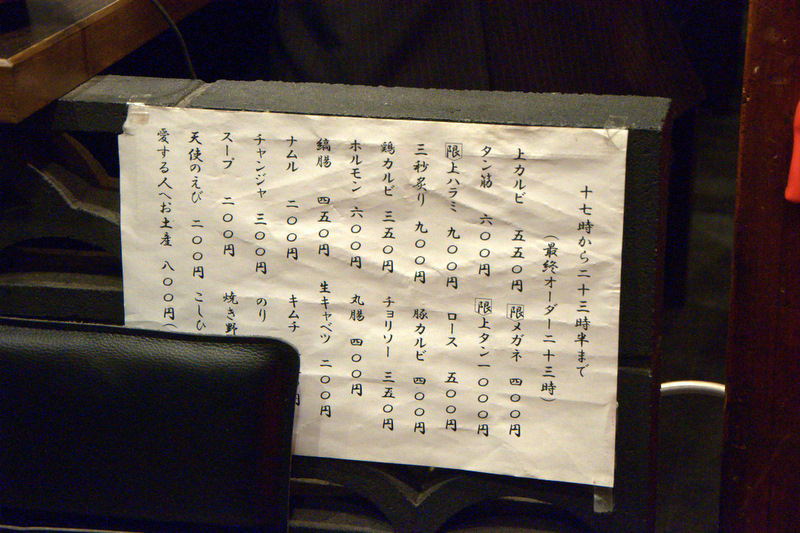 十七時から二十三時半まで
(最終オーダー二十三時)
上カルビ 五五〇円 限メガネ 四〇〇円
タン筋 六〇〇円 限上タン一〇〇〇円
限上ハラミ 九〇〇円 ロース 五〇〇円
三秒炙り 九〇〇円 豚カルビ 四〇〇円
鶏カルビ 三五〇円 チョリソー 三五〇円
ホルモン 六〇〇円 丸腸 四〇〇円
縞腸 四五〇円 生キャベツ 二〇〇円
ナムル 二〇〇円 キムチ 円
チャンジャ 三〇〇円 のり
スープ 二〇〇円 焼き野
天使のえび 二〇〇円 こしひ
愛する人へお土産 八〇〇円(